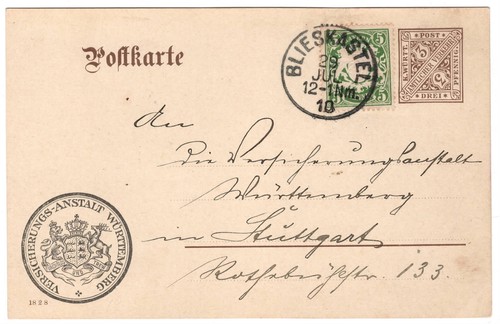 Postkarte
BLIESKASTEL
29
JUL
12-1 Nm.
10
5
5
K. WÜRTT. POST
3
3
PFENNIG
DREI
An
die Versicherungsanstalt
Württemberg
in Stuttgart
Rothebühlstr. 133.
VERSICHERUNGS-ANSTALT WÜRTTEMBERG
1828